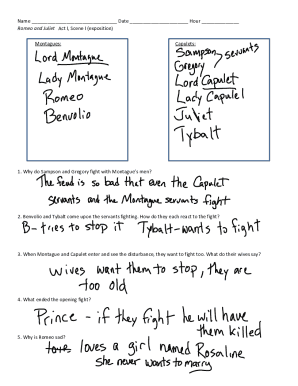 Name________________ Date________________ Hour__________
Romeo and Juliet Act I, Scene I (exposition)
Montagues:
Lord Montague
Lady Montague
Romeo
Benvolio
Capulets:
Sampson > servants
Gregory
Lord Capulet
Lady Capulel
Juliet
Tybalt
1. Why do Sampson and Gregory fight with Montague's men?
The feud is so bad that even the Capulet
servants and the Montague servants fight
2. Benvolio and Tybalt come upon the servants fighting. How do they each react to the fight?
B- tries to stop it Tybalt-wants to fight
3. When Montague and Capulet enter and see the disturbance, they want to fight too. What do their wives say?
wives want them to stop, they are
too old
4. What ended the opening fight?
Prince - if they fight he will have
them killed
5. Why is Romeo sad?
love loves a girl named Rosaline
She never wants to marry